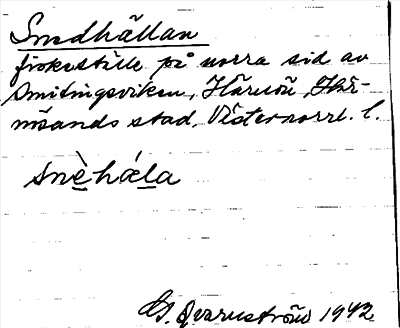 Smedhällan
fiskeställe på norra sid av
Smitingsviken, Härnön, Här-
nösands stad, Västernorrl. l.
snèhæla
G. Qvarnström 1942